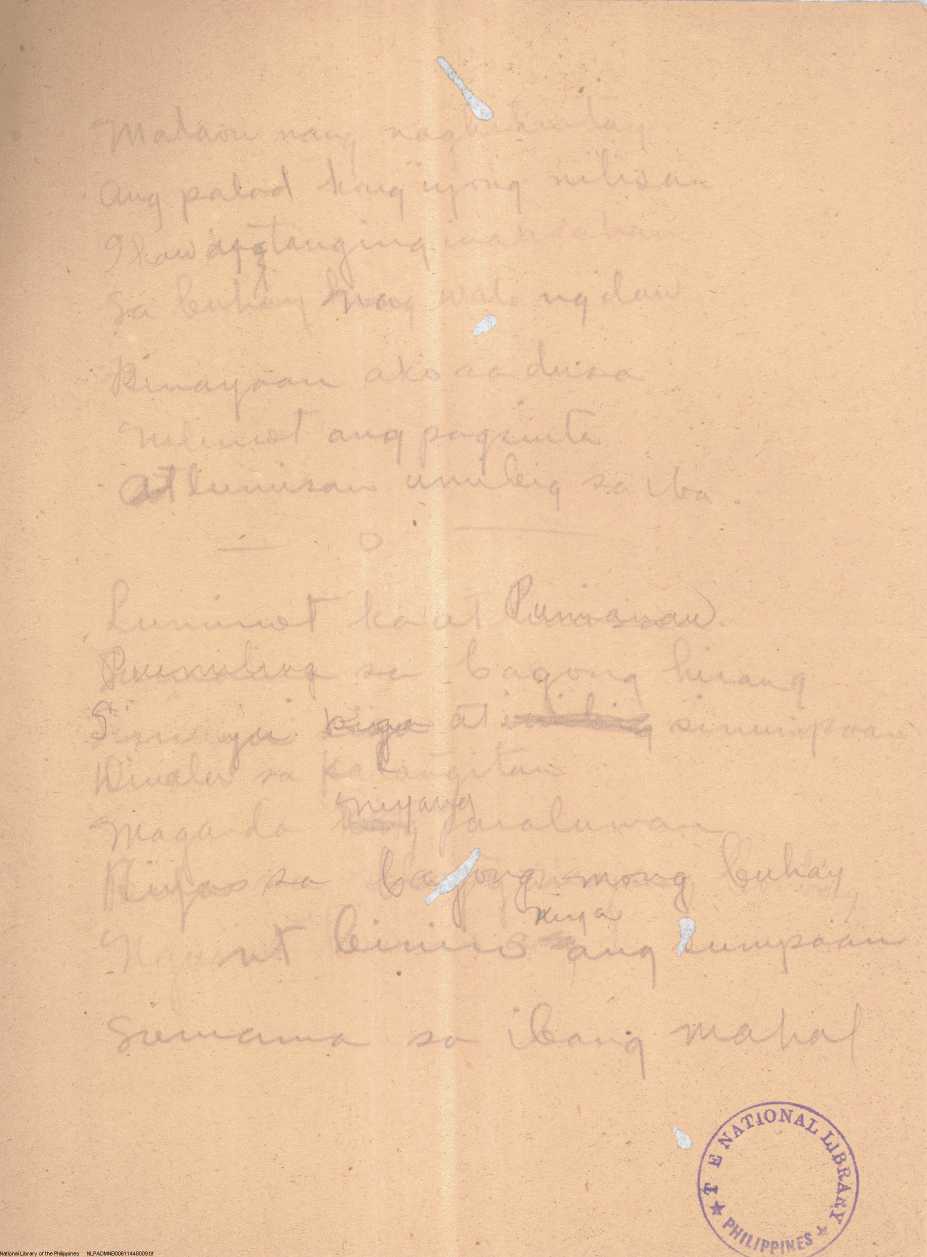 Malaon nang naghihintay
Ang palad kong iyong nilisan
Ikaw ang tanging
Sa buhay kong wala ng daw
Binayaan ako sa dusa
Nilimot ang pagsinta
At lumisan umibig sa iba.
— O —
Lumimot ka at Pumanaw.
sa bagong hirang
at sinumpaan
sa kalangitan
Maganda niyang paraluman
sa bagong mong buhay,
Ngunit niya ang sumpaan
Sumama sa ibang mahal
THE NATIONAL LIBRARY
PHILIPPINES
National Library of the Philippines NLPADMNB00611440009.tif